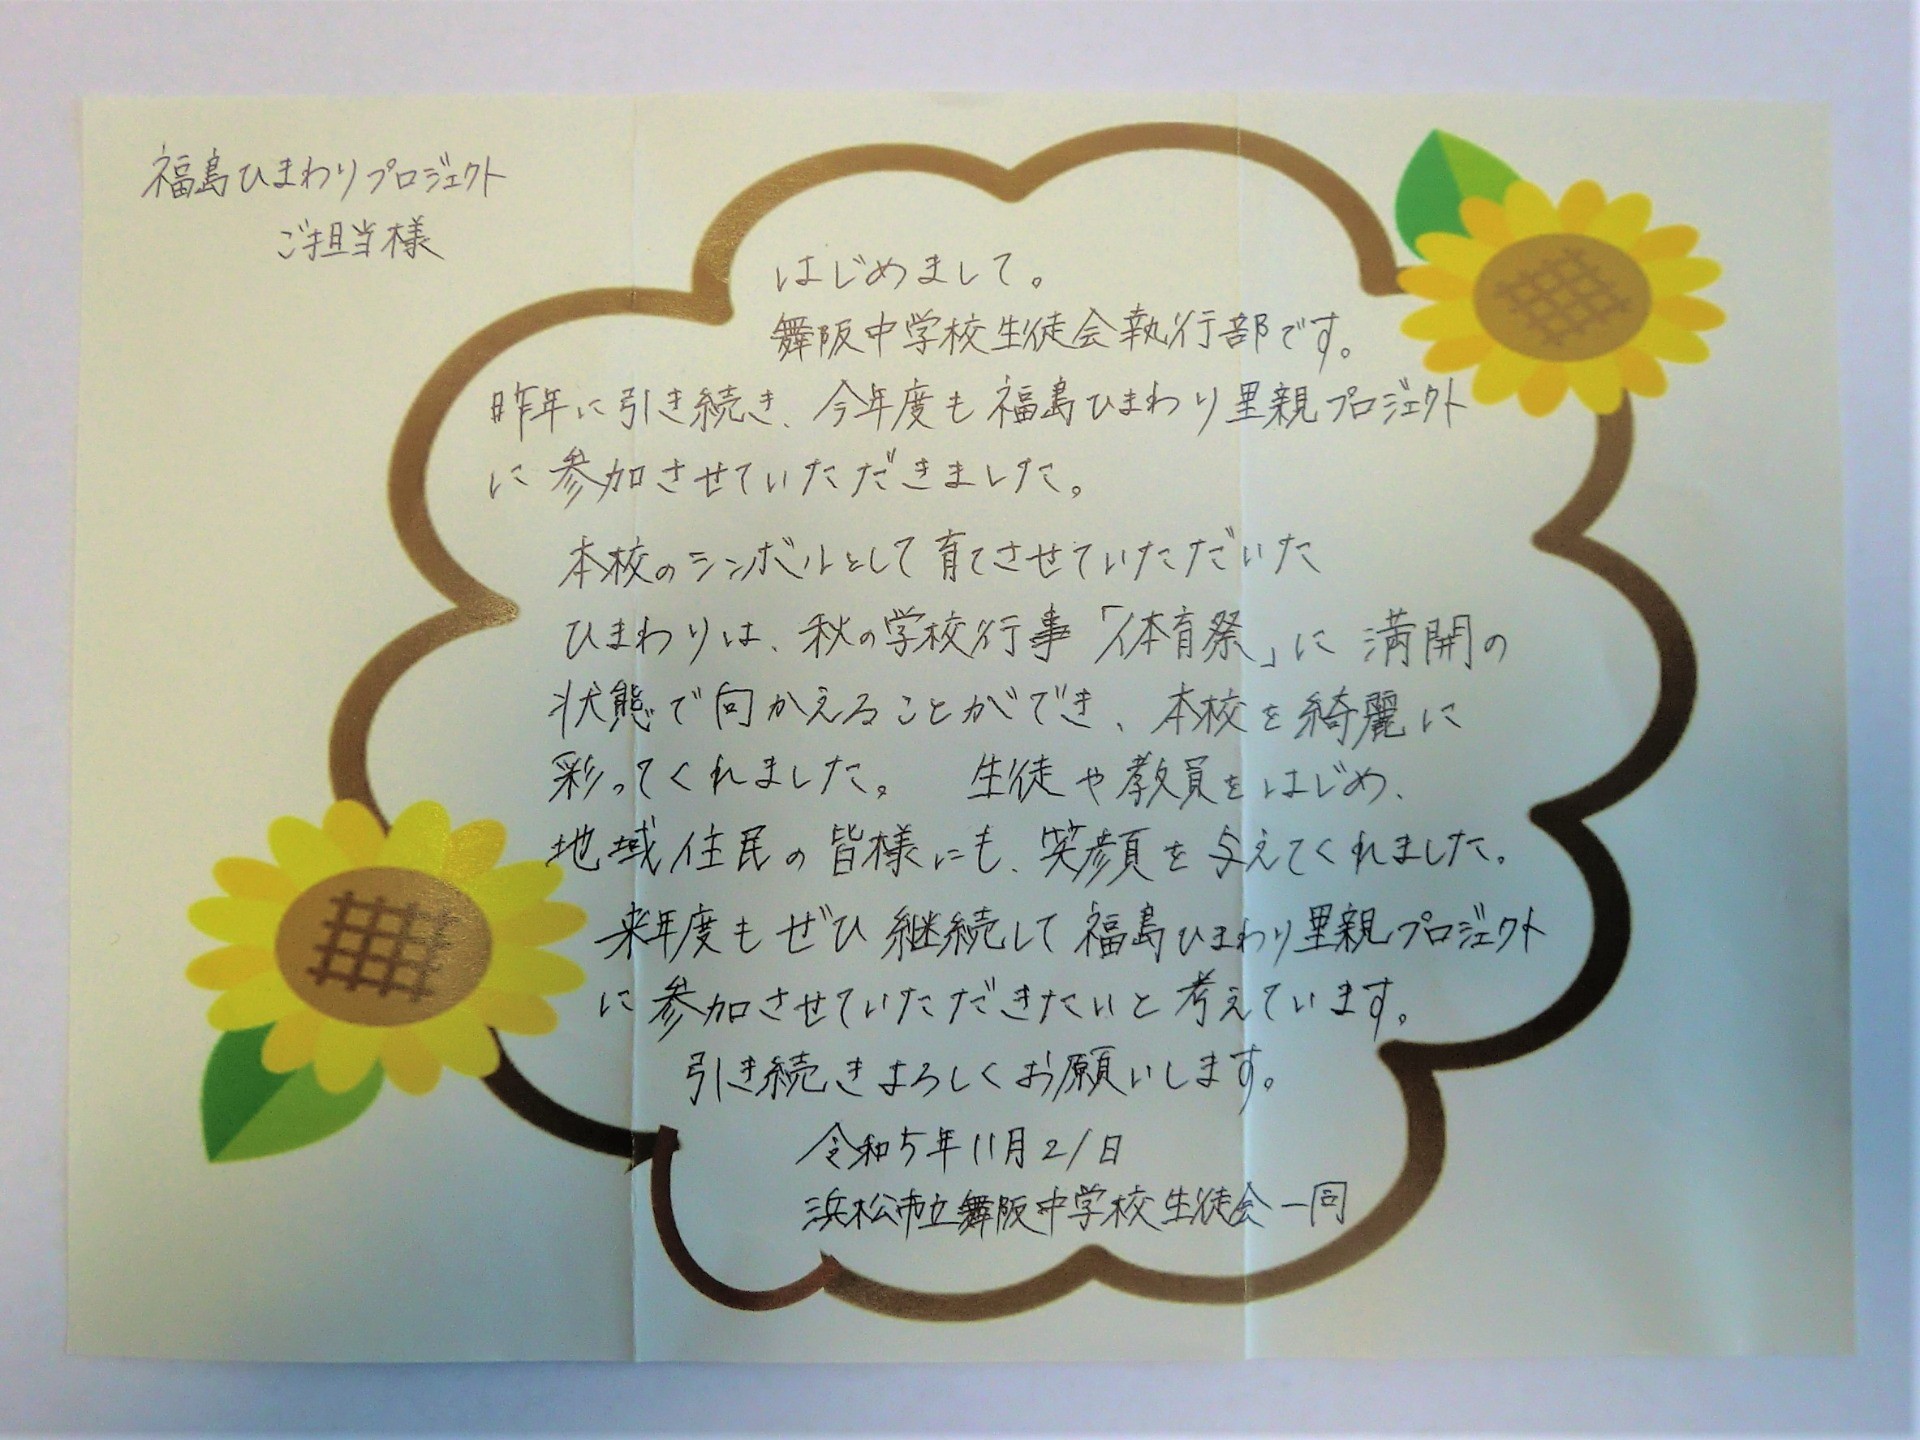 福島ひまわりプロジェクト
ご担当様
はじめまして。
舞阪中学校生徒会執行部です。
昨年に引き続き、今年度も福島ひまわり里親プロジェクト
に参加させていただきました。
本校のシンボルとして育てさせていただいた
ひまわりは、秋の学校行事「体育祭」に満開の
状態で向かえることができ、本校を綺麗に
彩ってくれました。 生徒や教員をはじめ、
地域住民の皆様にも、笑顔を与えてくれました。
来年度もぜひ継続して福島ひまわり里親プロジェクト
に参加させていただきたいと考えています。
引き続きよろしくお願いします。
令和5年11月21日
浜松市立舞阪中学校生徒会一同